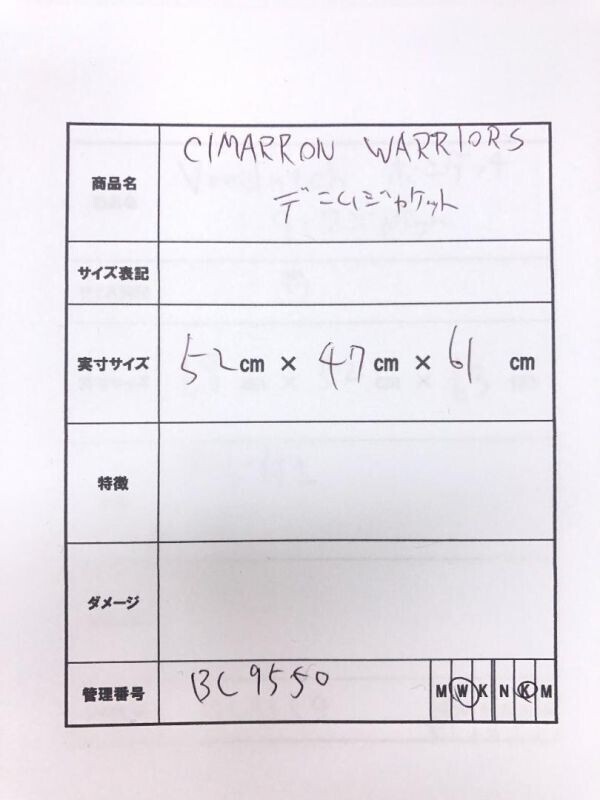 商品名
CIMARRON WARRIORS
デニムジャケット
サイズ表記
実寸サイズ
52cm × 47cm × 61 cm
特徴
ダメージ
管理番号
BC9550
M W K N K M